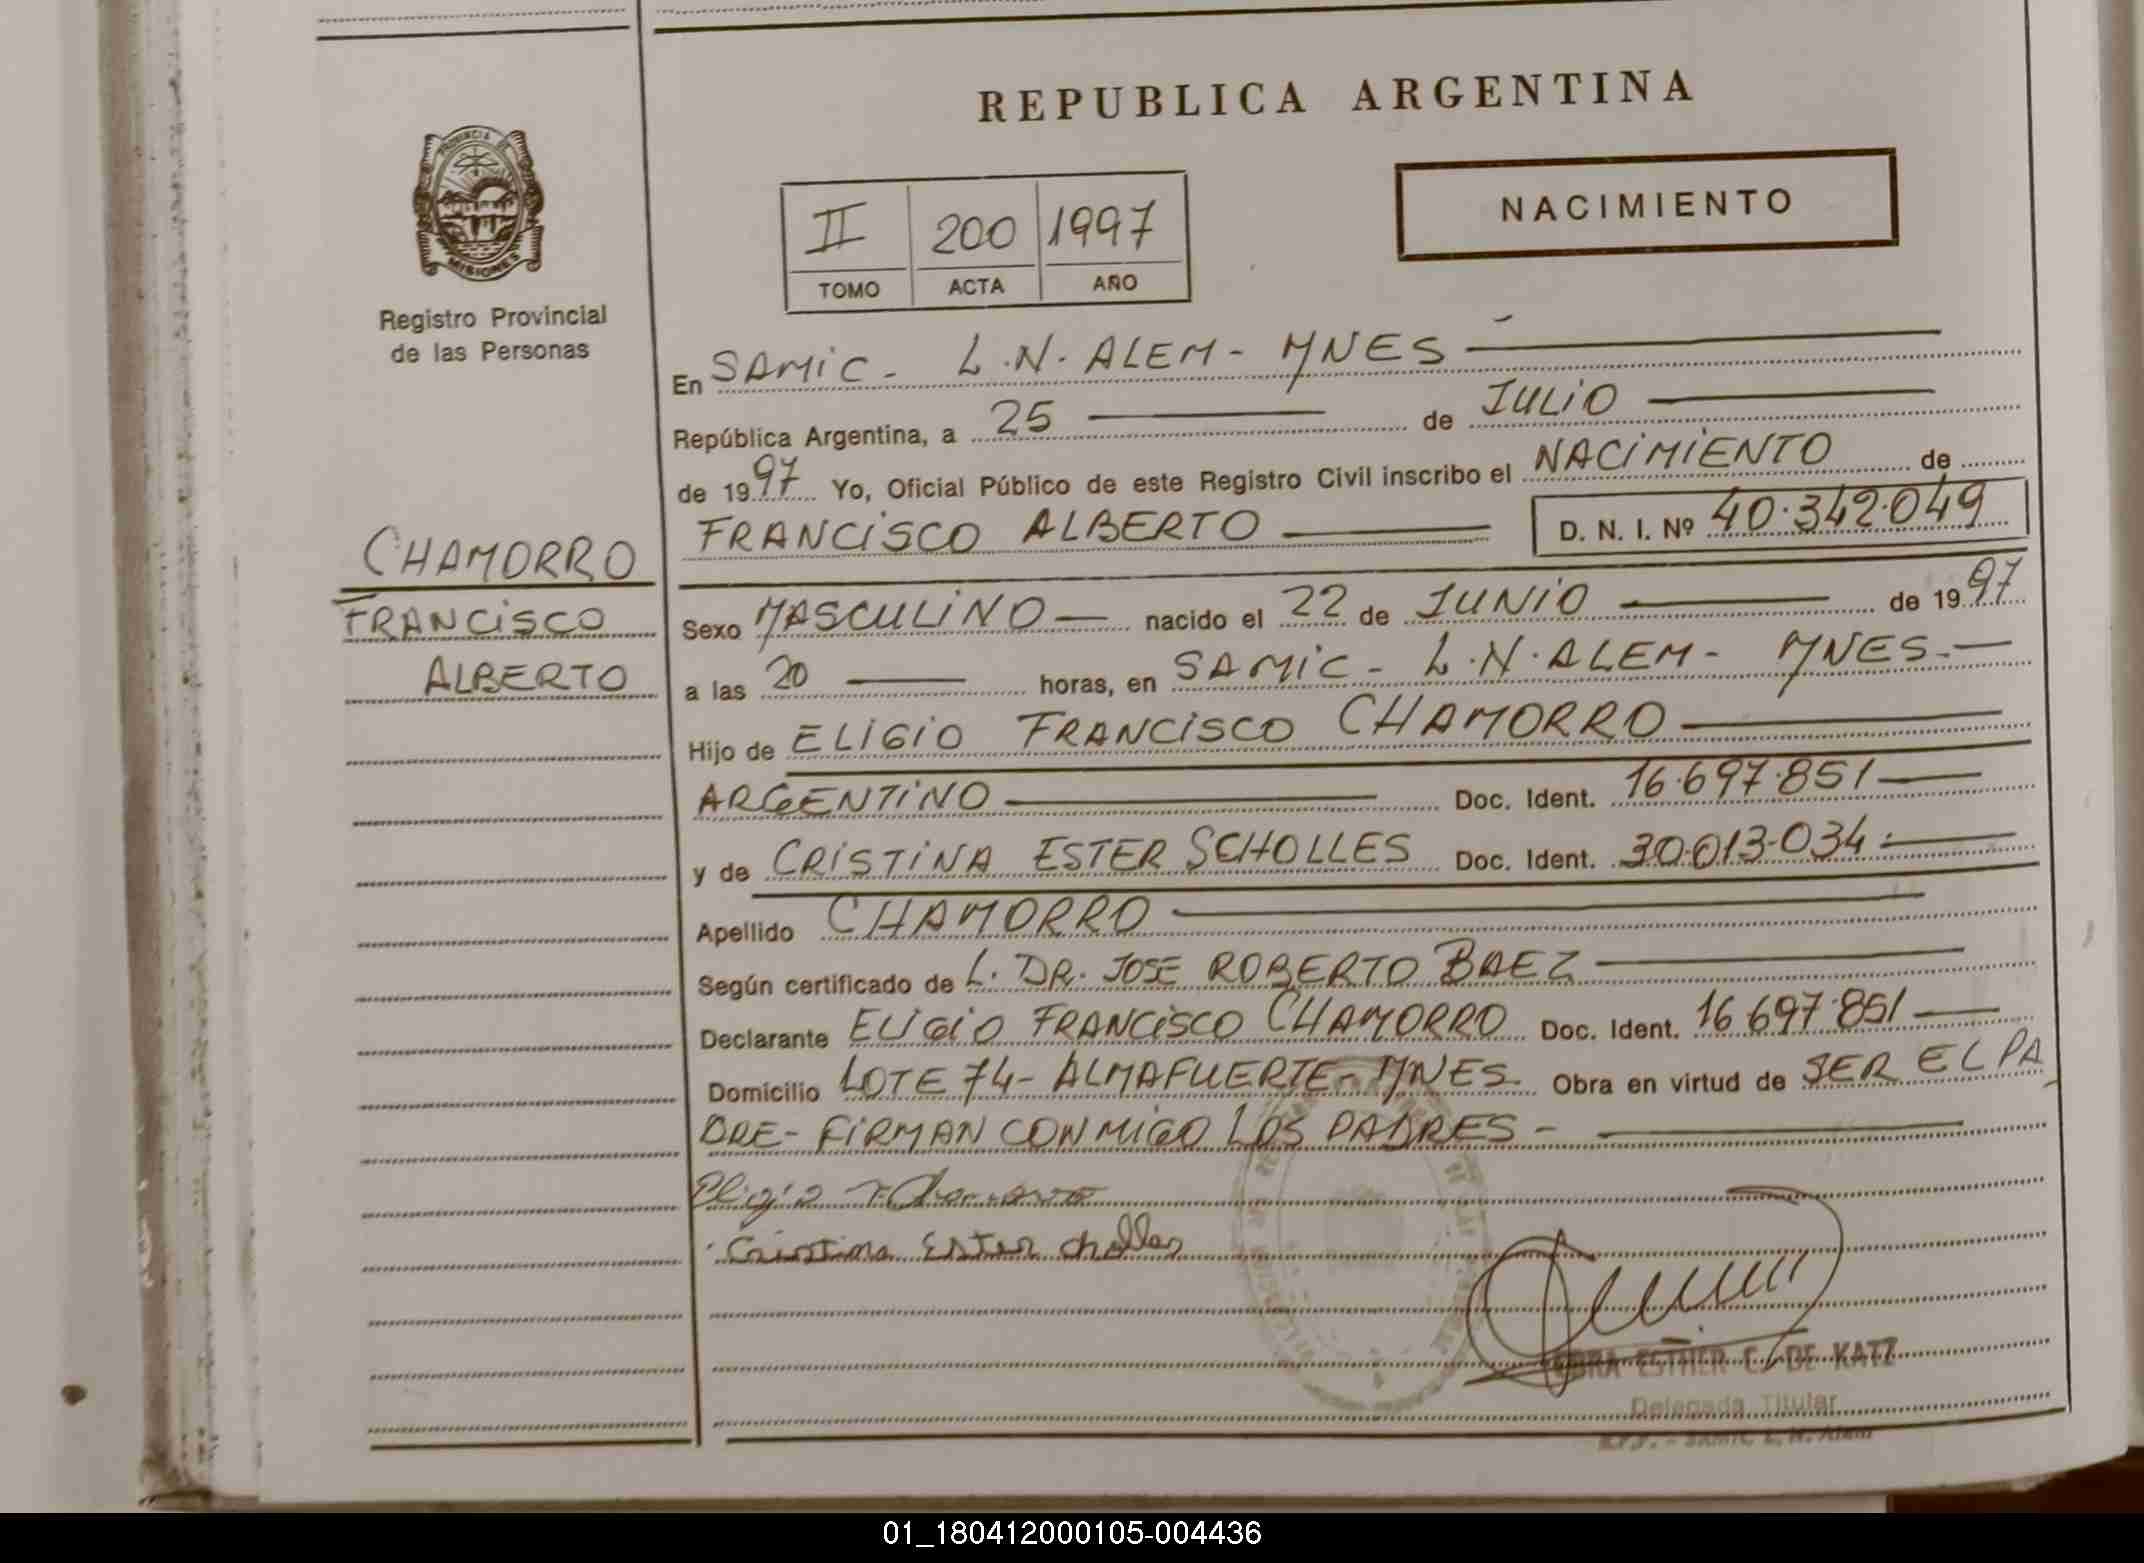 REPUBLICA ARGENTINA
PROVINCIA DE
MISIONES
Registro Provincial
de las Personas
II 200 1997
TOMO ACTA AÑO
NACIMIENTO
CHAMORRO
FRANCISCO
ALBERTO
En SAMIC - L.N. ALEM - MNES
República Argentina, a 25 de JULIO
de 1997 Yo, Oficial Público de este Registro Civil inscribo el NACIMIENTO de
FRANCISCO ALBERTO D. N. I. Nº 40.342.049
Sexo MASCULINO nacido el 22 de JUNIO de 1997
a las 20 horas, en SAMIC - L.N. ALEM - MNES.
Hijo de ELIGIO FRANCISCO CHAMORRO
ARGENTINO Doc. Ident. 16.697.851
y de CRISTINA ESTER SCHOLLES Doc. Ident. 30.013.034.
Apellido CHAMORRO
Según certificado de L. DR. JOSE ROBERTO BAEZ
Declarante ELIGIO FRANCISCO CHAMORRO Doc. Ident. 16.697.851
Domicilio LOTE 74 - ALMAFUERTE - MNES. Obra en virtud de SER EL PA
DRE - FIRMAN CONMIGO LOS PADRES -
Cristina Ester
ESTHER C. DE KATZ
Delegada Titular
R.P.P. - SAMIC L. N. Alem
01_180412000105-004436